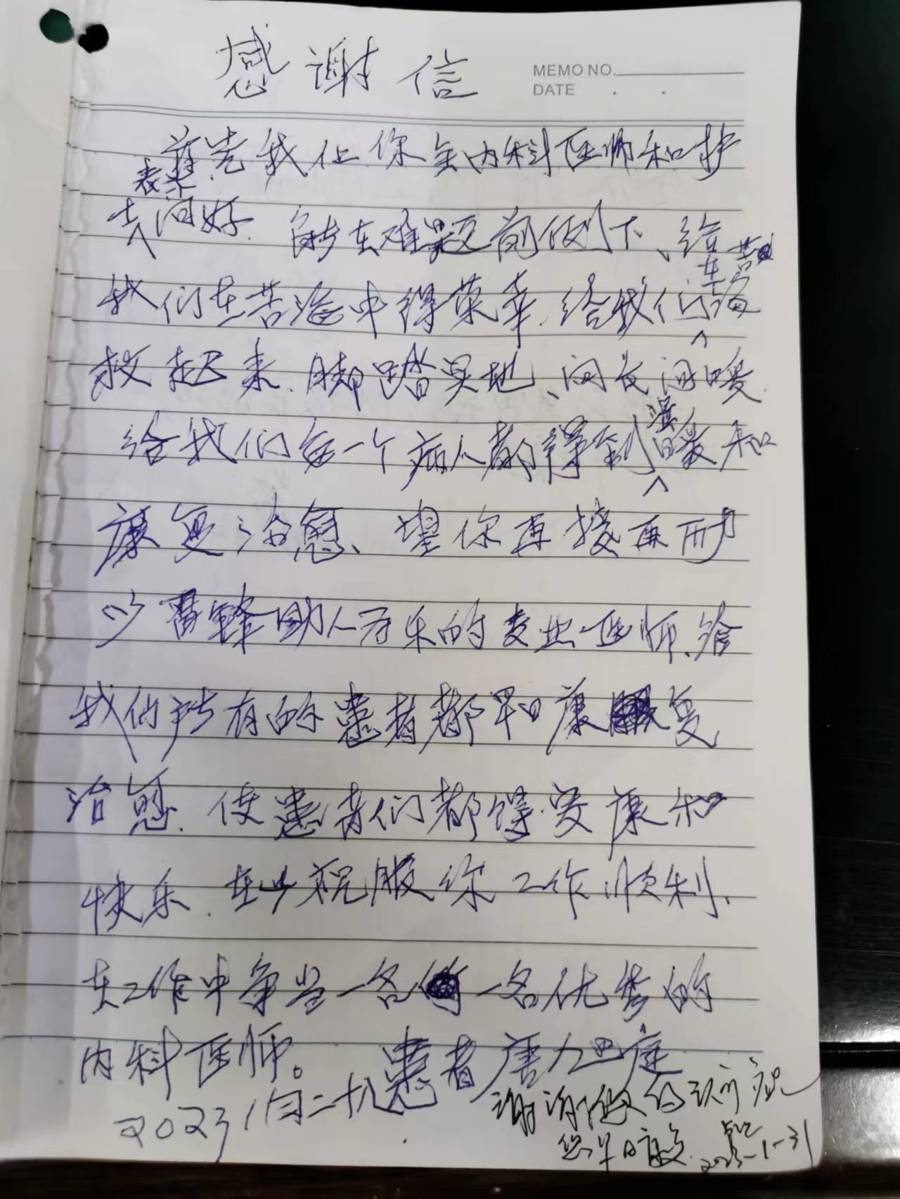 感谢信
MEMO NO.
DATE . .
首先我让你全内科医师和护
表示
士问好. 能在难题前倒下、给
在苦
我们在苦海中得荣幸. 给我们海
救起来. 脚踏实地、问长问暖.
给我们每一个病人都得到温暖和
康复治愈、望你再接再励
以雷锋助人为乐的专业医师、给
我们所有的患者都早日康复
治愈. 使患者们都得受康和
快乐. 在此祝服你工作顺利、
在工作中争当一名一名优秀的
内科医师。 患者唐九
2023 1月二十八
谢谢您的
您早日康复. 2023-1-31